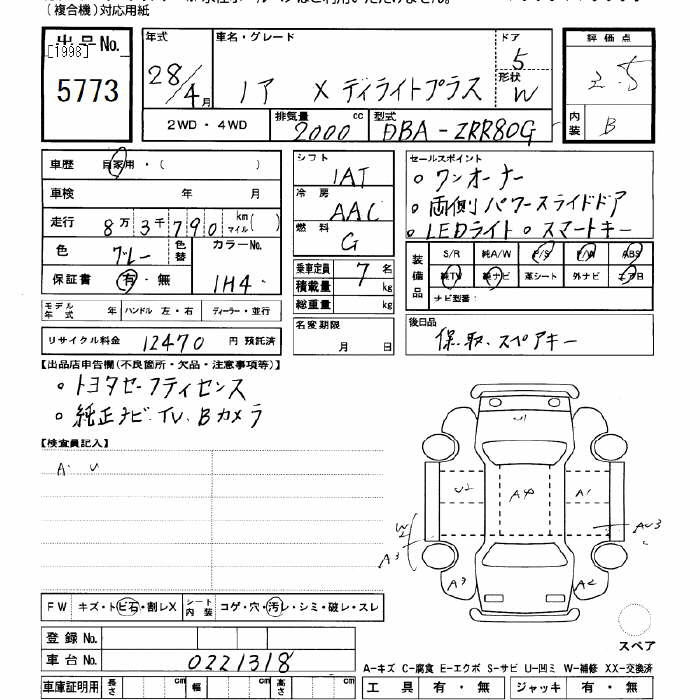 (複合機)対応用紙
出品No.
[1998]
5773
年式
28/4月
車名・グレード
ノア X ディライトプラス
ドア
5
形状
W
評価点
3.5
内装
B
2WD・4WD
排気量
2000 cc
型式
DBA-ZRR80G
車歴 自家用・( )
車検 年 月
走行 8万3千790 km マイル( )
色 グレー 色替 カラーNo. 1H4
保証書 有・無
モデル年式 年 ハンドル 左・右 ディーラー・並行
リサイクル料金 12470 円 預託済
シフト
IAT
冷房
AAC
燃料
G
乗車定員 7 名
積載量 kg
総重量 kg
名変期限
月 日
セールスポイント
○ ワンオーナー
○ 両側パワースライドドア
○ LEDライト ○ スマートキー
装備品
S/R 純A/W P/S P/W ABS
純TV 純ナビ 革シート 外ナビ エアB
ナビ型番:
後日品
保.取.スペアキー
【出品店申告欄(不良箇所・欠品・注意事項等)】
○ トヨタセーフティセンス
○ 純正ナビ.TV.Bカメラ
【検査員記入】
A. U
U1
U2 A4 A1
W2 AU3
A3
A3 A2
スペア
FW キズ・トビ石・割レX シート内装 コゲ・穴・汚レ・シミ・破レ・スレ
登録No.
車台No. 0221318
A-キズ C-腐食 E-エクボ S-サビ U-凹ミ W-補修 XX-交換済
車庫証明用 長さ cm 幅 cm 高さ cm 工具 有・無 ジャッキ 有・無